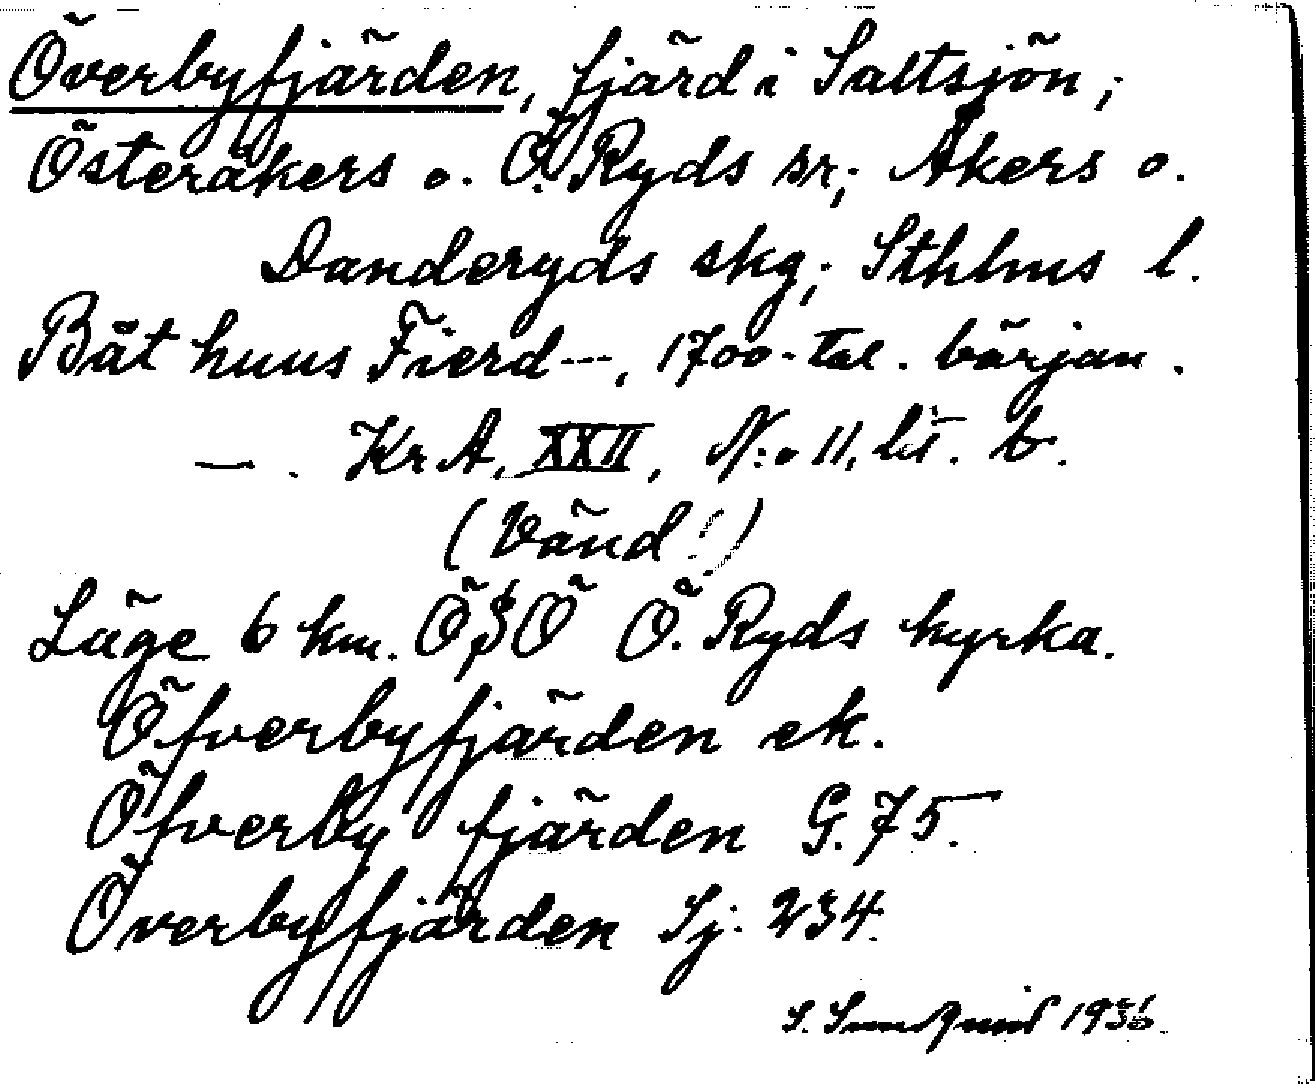 Överbyfjärden, fjärd i Saltsjön;
Österåkers o. Ö. Ryds sr; Åkers o.
Danderyds skg; Sthlms l.
Båt huus Fierd---, 1700-tal. början.
—. KrA, XXII, N:o 11, lit. b.
(Vänd!)
Läge 6 km. ÖSÖ Ö. Ryds kyrka.
Öfverbyfjärden ek.
Öfverby fjärden G. 75.
Överbyfjärden Sj. 234.
S. Sundquist 1936.